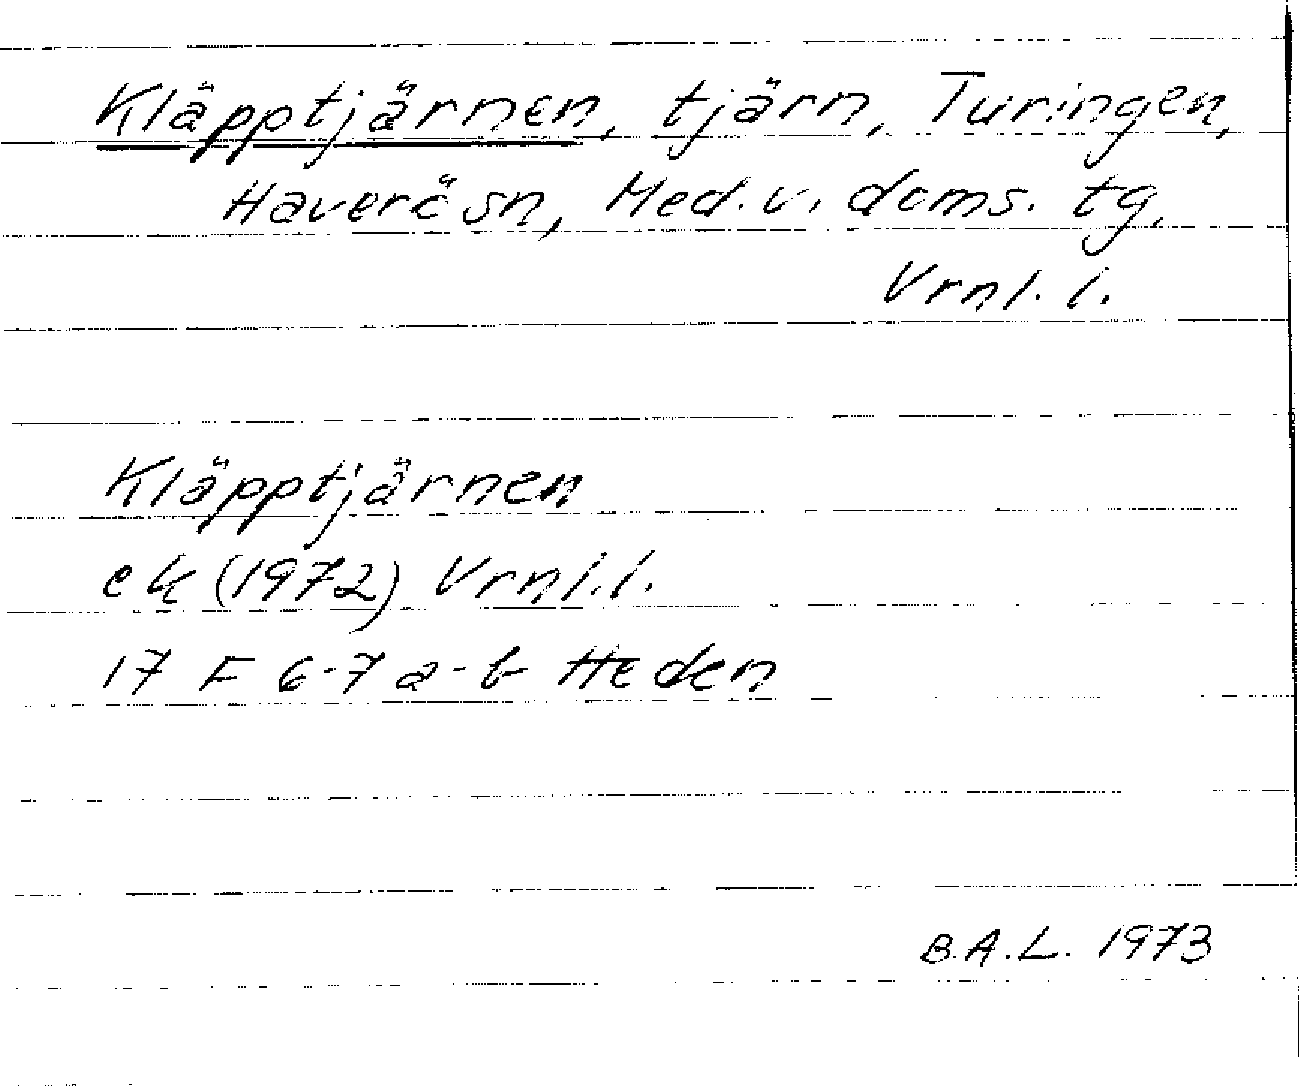 Kläpptjärnen, tjärn, Turingen,
Haverö sn, Med. v. doms. tg,
Vrnl. l.
Kläpptjärnen
ek (1972) Vrnl. l.
17 F 6-7 a-b Heden
B.A.L. 1973